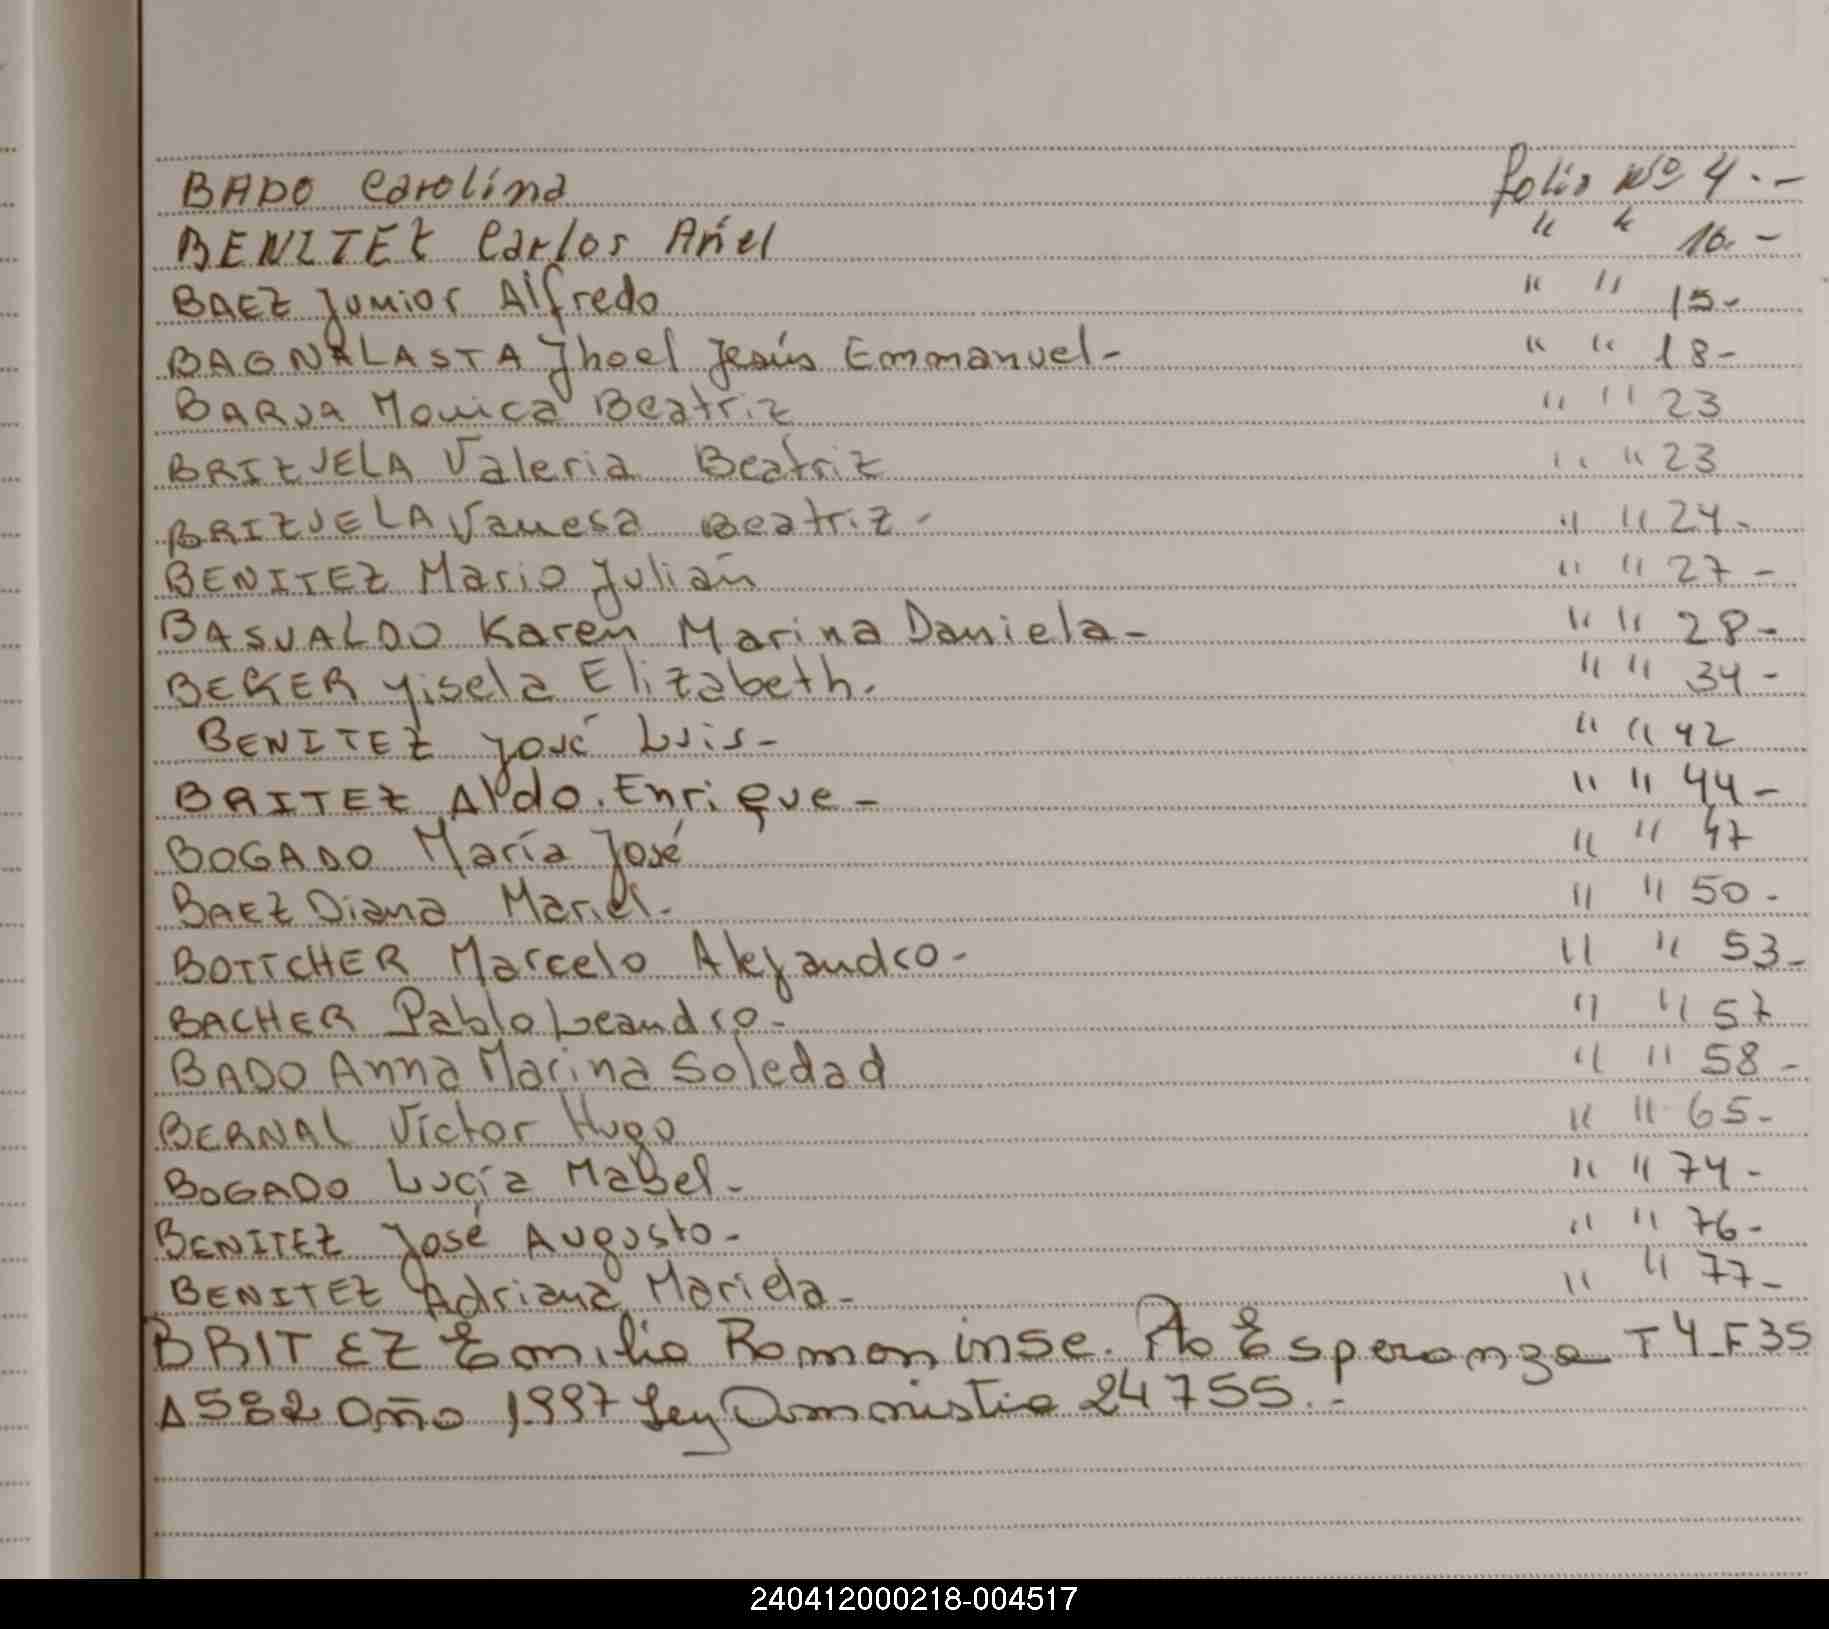 BADO Carolina folio Nº 4.-
BENITEZ Carlos Ariel " " 10.-
BAEZ Junior Alfredo " " 15-
BAGNALASTA Jhoel Jesús Emmanuel- " " 18-
BARUA Monica Beatriz " " 23
BRIZUELA Valeria Beatriz " " 23
BRIZUELA Vanesa Beatriz- " " 24-
BENITEZ Mario Julián " " 27-
BASUALDO Karen Marina Daniela- " " 28-
BEKER Yisela Elizabeth. " " 34-
BENITEZ José Luis- " " 42
BRITEZ Aldo Enrique- " " 44-
BOGADO María José " " 47
BAEZ Diana Mariel- " " 50-
BOTTCHER Marcelo Alejandro- " " 53-
BACHER Pablo Leandro- " " 57
BADO Anna Marina Soledad " " 58-
BERNAL Víctor Hugo " " 65-
BOGADO Lucía Mabel- " " 74-
BENITEZ José Augusto- " " 76-
BENITEZ Adriana Mariela- " " 77-
BRITEZ Emilio Roman inse. Pto Esperanza T4-F35
A582 año 1997 Ley Amnistia 24755.-
240412000218-004517